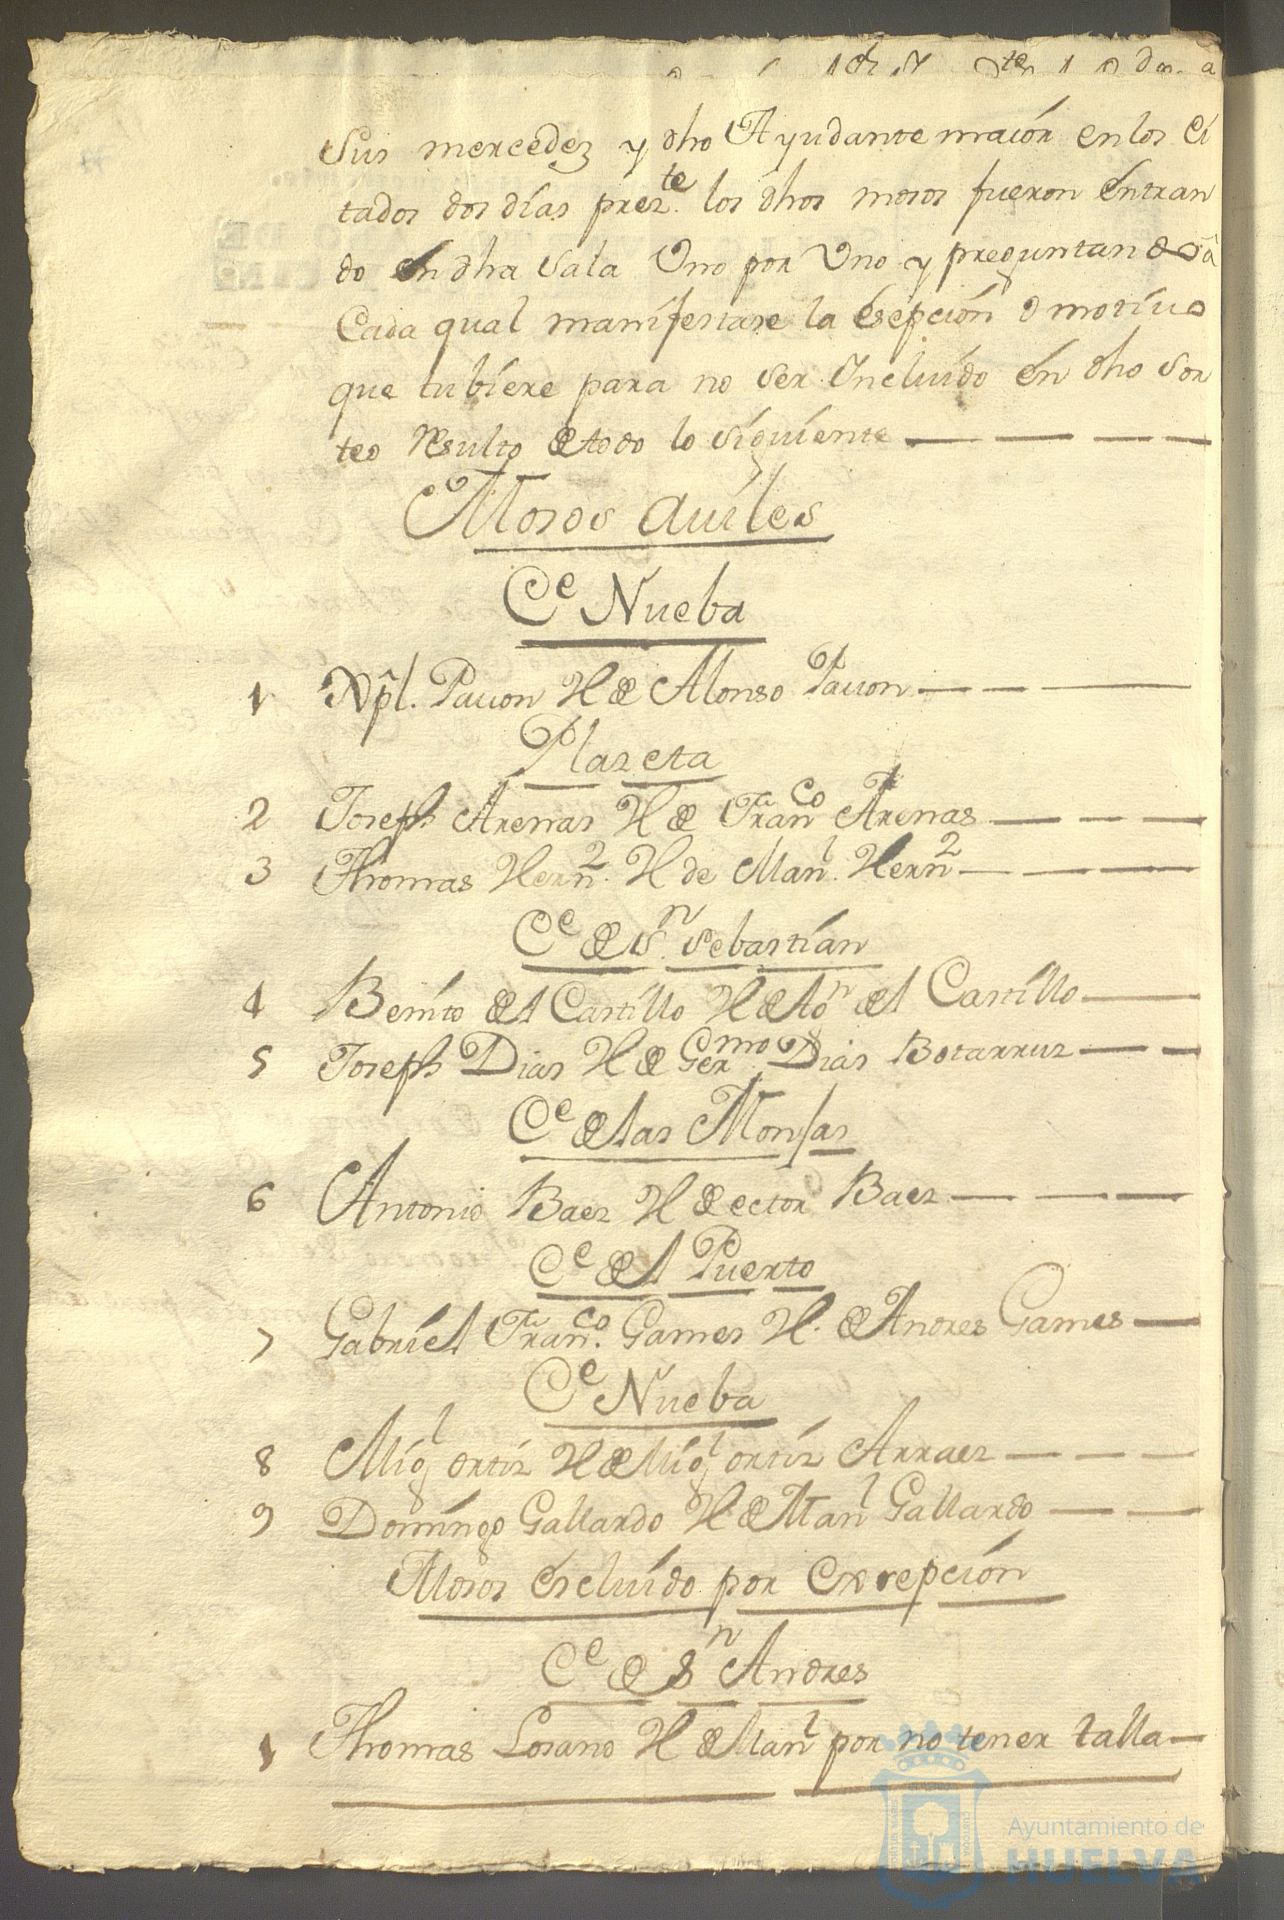 Sus mercedez y dho Ayudante maior en los ci
tados dos días prezte. los dhos mosos fueron entran
do en dha sala Uno por Uno y preguntando â
Cada qual manifestase la esepción o motivo
que tubiere para no ser Incluido en dho sor
teo Resulto de todo lo siguiente
Mosos auiles
Ce Nueba
1 Xpl. Pauon H de Alonso Pauon
Plazeta
2 Joseph Arenas H de Franco Arenas
3 Thomas Hernz. H de Manl. Hernz
Ce de Sn. Sebastian
4 Benito del Castillo H de Ton del Castillo
5 Joseph Dias H de Germo Dias Botarruz
Ce de las Monjas
6 Antonio Baez H de ector Baez
Ce del Puerto
7 Gabriel Franco. Games H. de Andres Games
Ce Nueba
8 Migl ortiz H de Migl ortiz Arraez
9 Domingo Gallardo H. de Manl Gallardo
Mosos escluido por Excepción
Ce de Sn Andres
1 Thomas Losano H de Manl por no tener talla
Ayuntamiento de
HUELVA